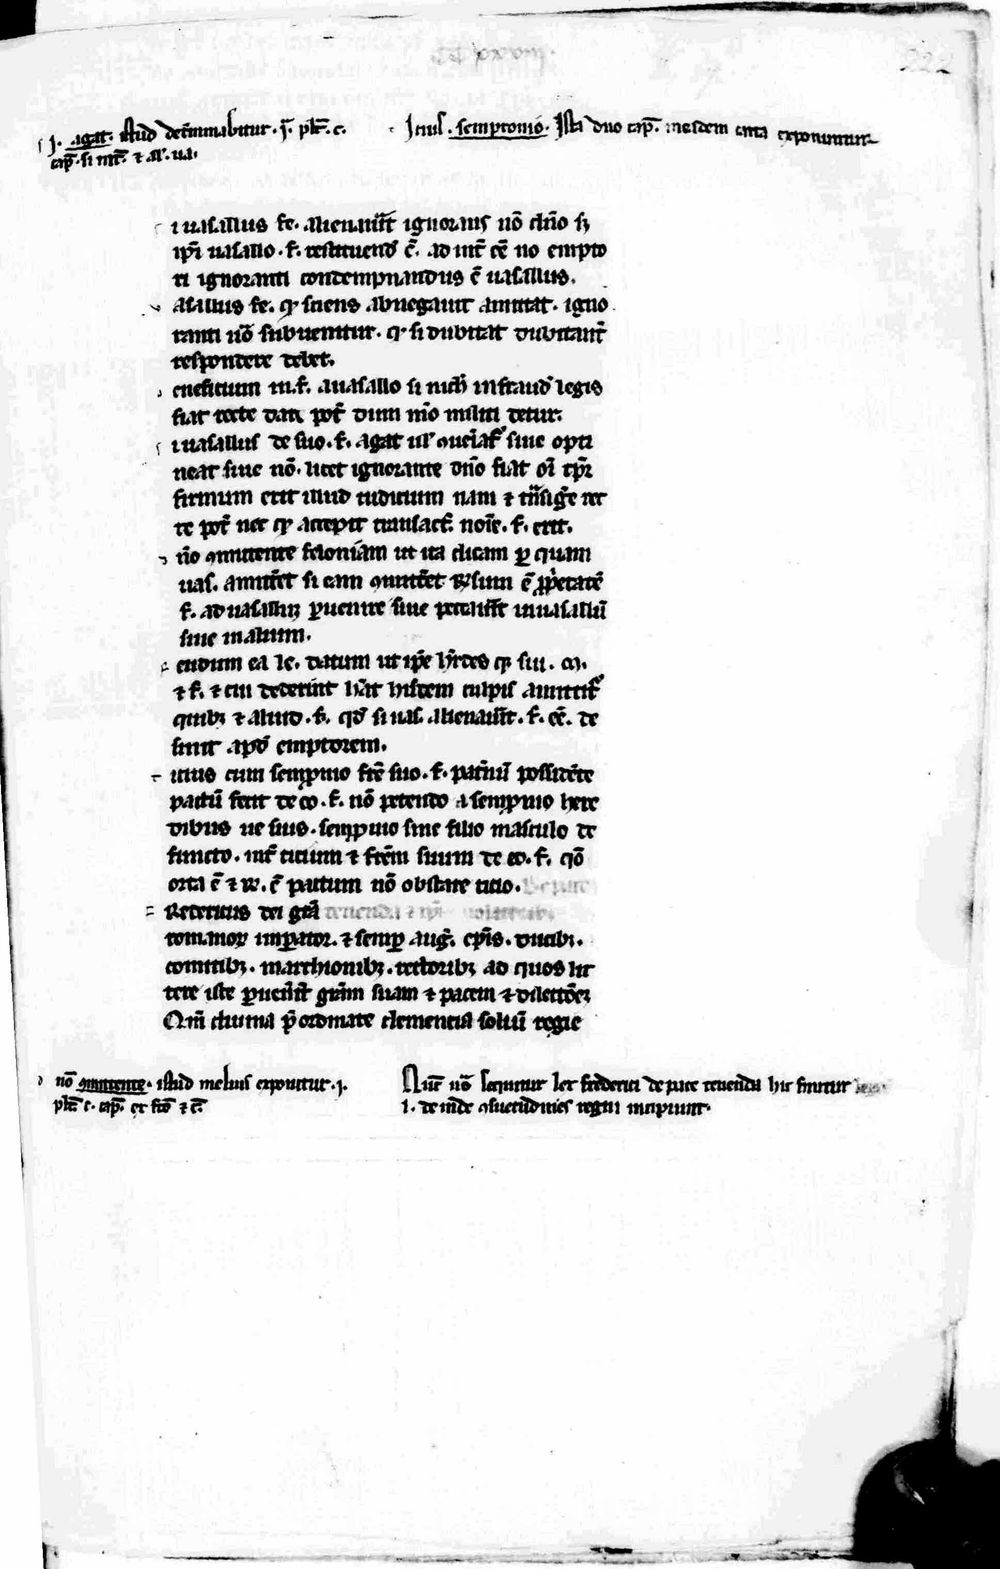 222
J. agat. istud det̄minabitur. J. pl̄c̄. c.
cap̄. si int̄. ⁊ al'. ua.
Iciuſ. sempronio. Ista duo cap̄. inesdem exponuntur
i uasallus fe. alienauit̄ ignorans nō dn̄o sȝ
ip̄i uasallo. f. restituend' ē. ad int̄ eē no empto
ri ignoranti condempnandus ē uasallus.
asallus fe. qͥ sciens abnegauit amittat. igno
ranti nō subuenitur. qͥ si dubitat dubitant̄
respondere debet.
eneficium m. f. auasallo si nich' infraud' legis
fiat recte dari pot̄ dum nō militi detur.
i uasallus de suo. f. agat ul' siue opti
neat siue nō. licet ignorante dn̄o fiat oī tp̄r
firmum erit illud iudicium nam ⁊ trāsig̃e rec
te pot̄ nec qͥ accepit transact̄. noīe. f. erit.
n̄o ꝯmittente feloniam ut ita dicam ꝑ quam
uas. amitt̄et si eam ꝯmitt̄et rͬsum ē ꝓp̄etatē
f. ad uasallū ꝑuenire siue peccauit̄ inuasallū
siue inalium.
eudum ea le. datum ut ip̄e h̄rdes qͥ sui. m.
⁊ f. ⁊ cui dederint h̄at hisdem culpis amittit̄
quibȝ ⁊ aliud. f. qd' si uas. alienauit̄. f. eē. de
sinit apd' emptorem.
itius cum sempronio fr̄e suo. f. pat̄nū possidēte
pactū fecit de eo. f. nō petendo a sempronio here
dibus ue suis. sempronio sine filio masculo de
functo. int̄ ticium ⁊ frēm suum de eo. f. qō
orta ē ⁊ rͬ. ē pactum nō obstare ticio.
Redericus dei grā
romanoꝝ imꝑator. ⁊ semꝑ aug̃. ep̄is. ducibȝ.
comitibȝ. marchionibȝ. rectoribȝ ad quos lit
tere iste ꝑuen̄int grām suam ⁊ pacem ⁊ dilectōeȝ
Qm̄ diuina p̄ordinate clementia soliū regie
nō ꝯmittente. istud melius exponitur. J.
pl̄c̄ c. cap̄. et
Nūc nō sequitur lex frederici de pace tenenda hic finitur
l. deinde ꝯsuetudines regni incipiunt.